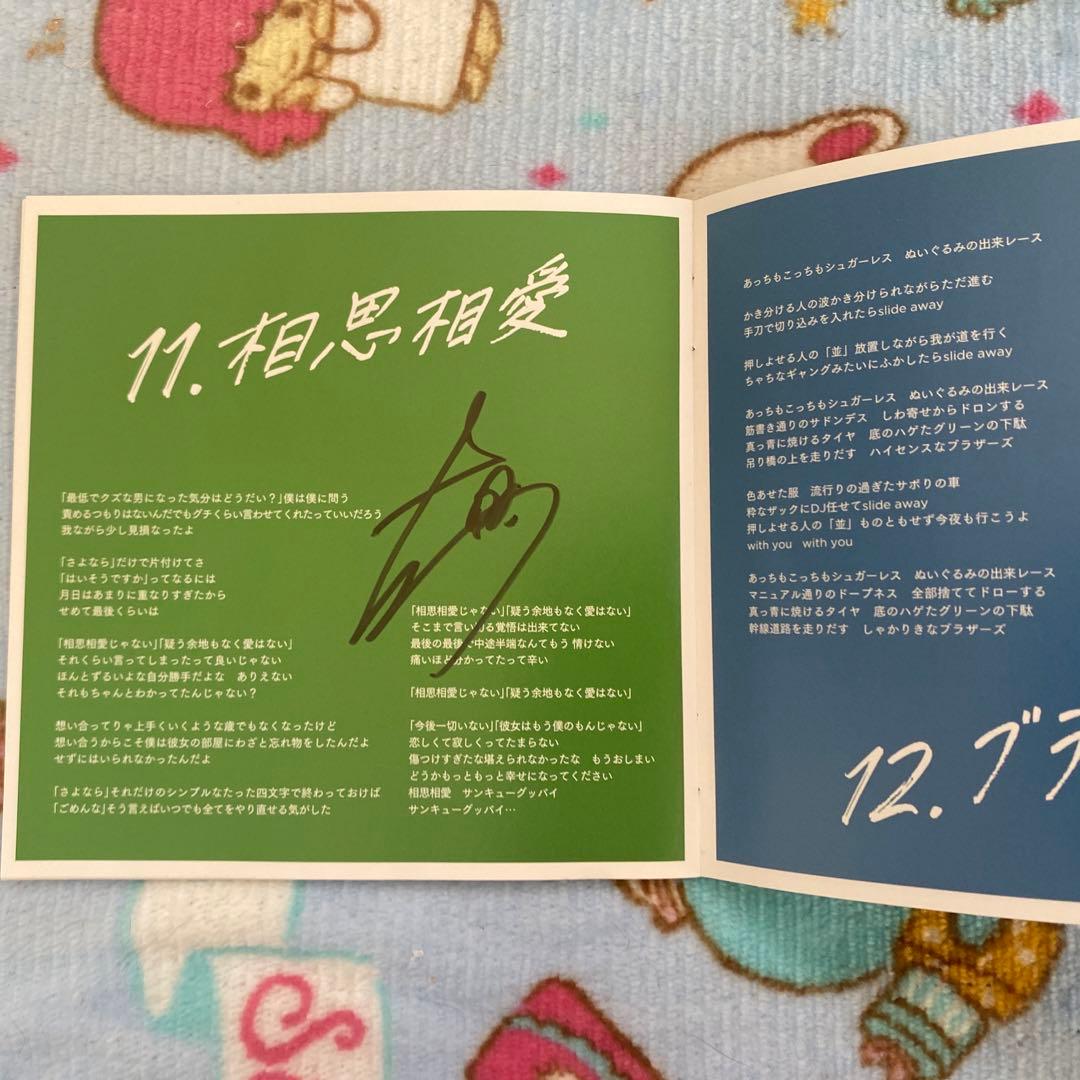 11. 相思相愛
「最低でクズな男になった気分はどうだい？」僕は僕に問う
責めるつもりはないんだでもグチくらい言わせてくれたっていいだろう
我ながら少し見損なったよ
「さよなら」だけで片付けてさ
「はいそうですか」ってなるには
月日はあまりに重なりすぎたから
せめて最後くらいは
「相思相愛じゃない」「疑う余地もなく愛はない」
それくらい言ってしまったって良いじゃない
ほんとずるいよな自分勝手だよな　ありえない
それもちゃんとわかってたんじゃない？
想い合ってりゃ上手くいくような歳でもなくなったけど
想い合うからこそ僕は彼女の部屋にわざと忘れ物をしたんだよ
せずにはいられなかったんだよ
「さよなら」それだけのシンプルなたった四文字で終わっておけば
「ごめんな」そう言えばいつでも全てをやり直せる気がした
「相思相愛じゃない」「疑う余地もなく愛はない」
そこまで言い切る覚悟は出来てない
最後の最後で中途半端なんてもう 情けない
痛いほど分かってたって辛い
「相思相愛じゃない」「疑う余地もなく愛はない」
「今後一切いない」「彼女はもう僕のもんじゃない」
恋しくて寂しくってたまらない
傷つけすぎたな堪えられなかったな　もうおしまい
どうかもっともっと幸せになってください
相思相愛　サンキューグッバイ
サンキューグッバイ…
あっちもこっちもシュガーレス　ぬいぐるみの出来レース
かき分ける人の波かき分けられながらただ進む
手刀で切り込みを入れたらslide away
押しよせる人の「並」放置しながら我が道を行く
ちゃちなギャングみたいにふかしたらslide away
あっちもこっちもシュガーレス　ぬいぐるみの出来レース
筋書き通りのサドンデス　しわ寄せからドロンする
真っ青に焼けるタイヤ　底のハゲたグリーンの下駄
吊り橋の上を走りだす　ハイセンスなブラザーズ
色あせた服　流行りの過ぎたサボりの車
粋なザックにDJ任せてslide away
押しよせる人の「並」ものともせず今夜も行こうよ
with you　with you
あっちもこっちもシュガーレス　ぬいぐるみの出来レース
マニュアル通りのドープネス　全部捨ててドローする
真っ青に焼けるタイヤ　底のハゲたグリーンの下駄
幹線道路を走りだす　しゃかりきなブラザーズ
12. ブラ